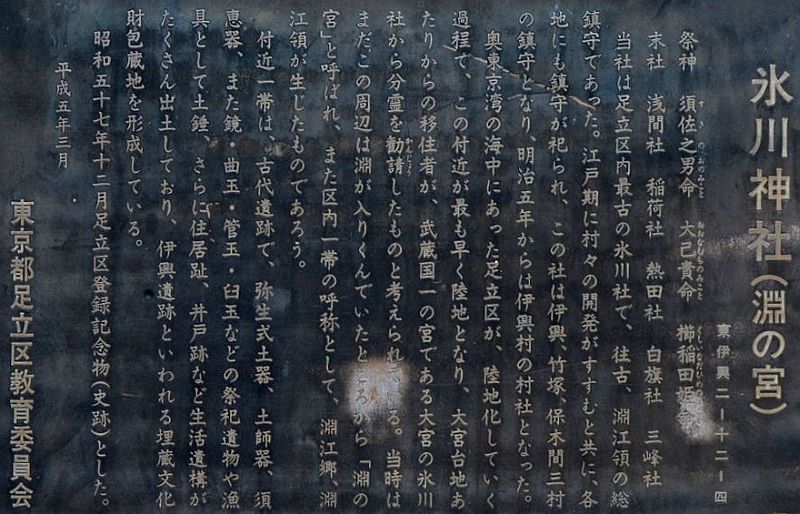 氷川神社（淵の宮）
東伊興二ー十二ー四
祭神　須佐之男命　大己貴命　櫛稲田姫命
すさのおのみこと　おおなむちのみこと　くしいなだひめの
末社　浅間社　稲荷社　熱田社　白旗社　三峰社
当社は足立区内最古の氷川社で、往古、淵江領の総
鎮守であった。江戸期に村々の開発がすすむと共に、各
地にも鎮守が祀られ、この社は伊興、竹塚、保木間三村
の鎮守となり、明治五年からは伊興村の村社となった。
奥東京湾の海中にあった足立区が、陸地化していく
過程で、この付近が最も早く陸地となり、大宮台地あ
たりからの移住者が、武蔵国一の宮である大宮の氷川
社から分霊を勧請したものと考えられている。当時は
かんじょう
まだこの周辺は淵が入りくんでいたところから「淵の
宮」と呼ばれ、また区内一帯の呼称として、淵江郷、淵
江領が生じたものであろう。
付近一帯は、古代遺跡で、弥生式土器、土師器、須
恵器、また鏡・曲玉・管玉・臼玉などの祭祀遺物や漁
具として土錘、さらに住居趾、井戸跡など生活遺構が
たくさん出土しており、伊興遺跡といわれる埋蔵文化
財包蔵地を形成している。
昭和五十七年十二月足立区登録記念物（史跡）とした。
平成五年三月
東京都足立区教育委員会